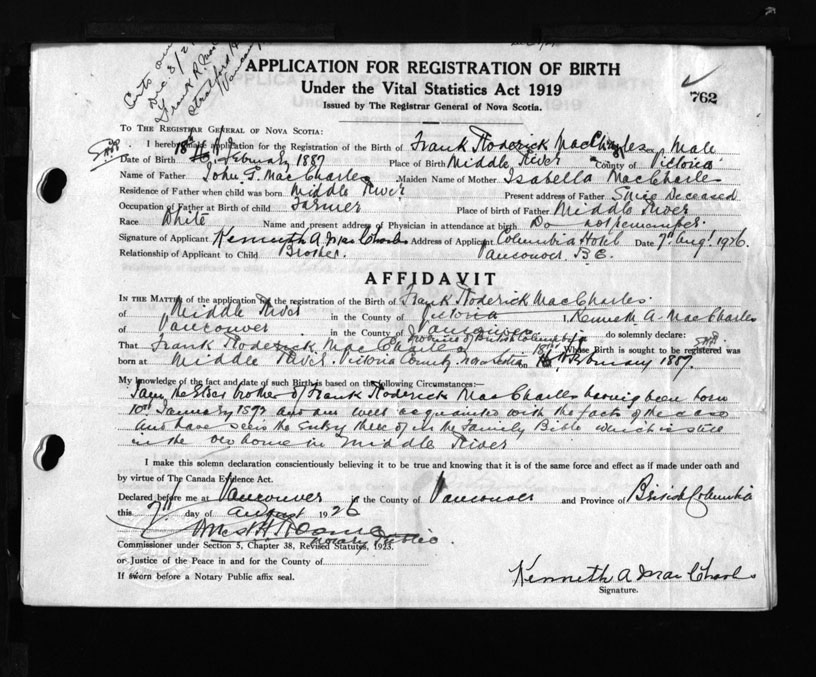 Dec 3/2
Frank R. Mac
Stratford H
Vancouver
APPLICATION FOR REGISTRATION OF BIRTH
Under the Vital Statistics Act 1919
Issued by The Registrar General of Nova Scotia.
762
TO THE REGISTRAR GENERAL OF NOVA SCOTIA:
I hereby make application for the Registration of the Birth of Frank Roderick MacCharles Sex Male
Date of Birth 18th February 1887 Place of Birth Middle River County of Victoria
Name of Father John G. MacCharles Maiden Name of Mother Isabella MacCharles
Residence of Father when child was born Middle River Present address of Father Since Deceased
Occupation of Father at Birth of child Farmer Place of birth of Father Middle River
Race White Name and present address of Physician in attendance at birth Do not remember.
Signature of Applicant Kenneth A. MacCharles Address of Applicant Columbia Hotel Date 7th Augt. 1926.
Relationship of Applicant to Child Brother. Vancouver B.C.
AFFIDAVIT
IN THE MATTER of the application for the registration of the Birth of Frank Roderick MacCharles.
of Middle River in the County of Victoria I, Kenneth A. MacCharles
of Vancouver in the County of Vancouver Province of British Columbia do solemnly declare:
That Frank Roderick MacCharles Whose Birth is sought to be registered was
born at Middle River, Victoria County, Nova Scotia on 18th February 1887.
My knowledge of the fact and date of such Birth is based on the following Circumstances:—
I am the Elder brother of Frank Roderick MacCharles having been born
10th January and am well acquainted with the facts of the case
and have seen the Entry thereof in the Family Bible which is still
in the old home in Middle River
I make this solemn declaration conscientiously believing it to be true and knowing that it is of the same force and effect as if made under oath and
by virtue of The Canada Evidence Act.
Declared before me at Vancouver the County of Vancouver and Province of British Columbia
this 7th day of August 1926
Notary Public.
Commissioner under Section 5, Chapter 38, Revised Statutes, 1923.
or Justice of the Peace in and for the County of
If sworn before a Notary Public affix seal.
Kenneth A MacCharles
Signature.